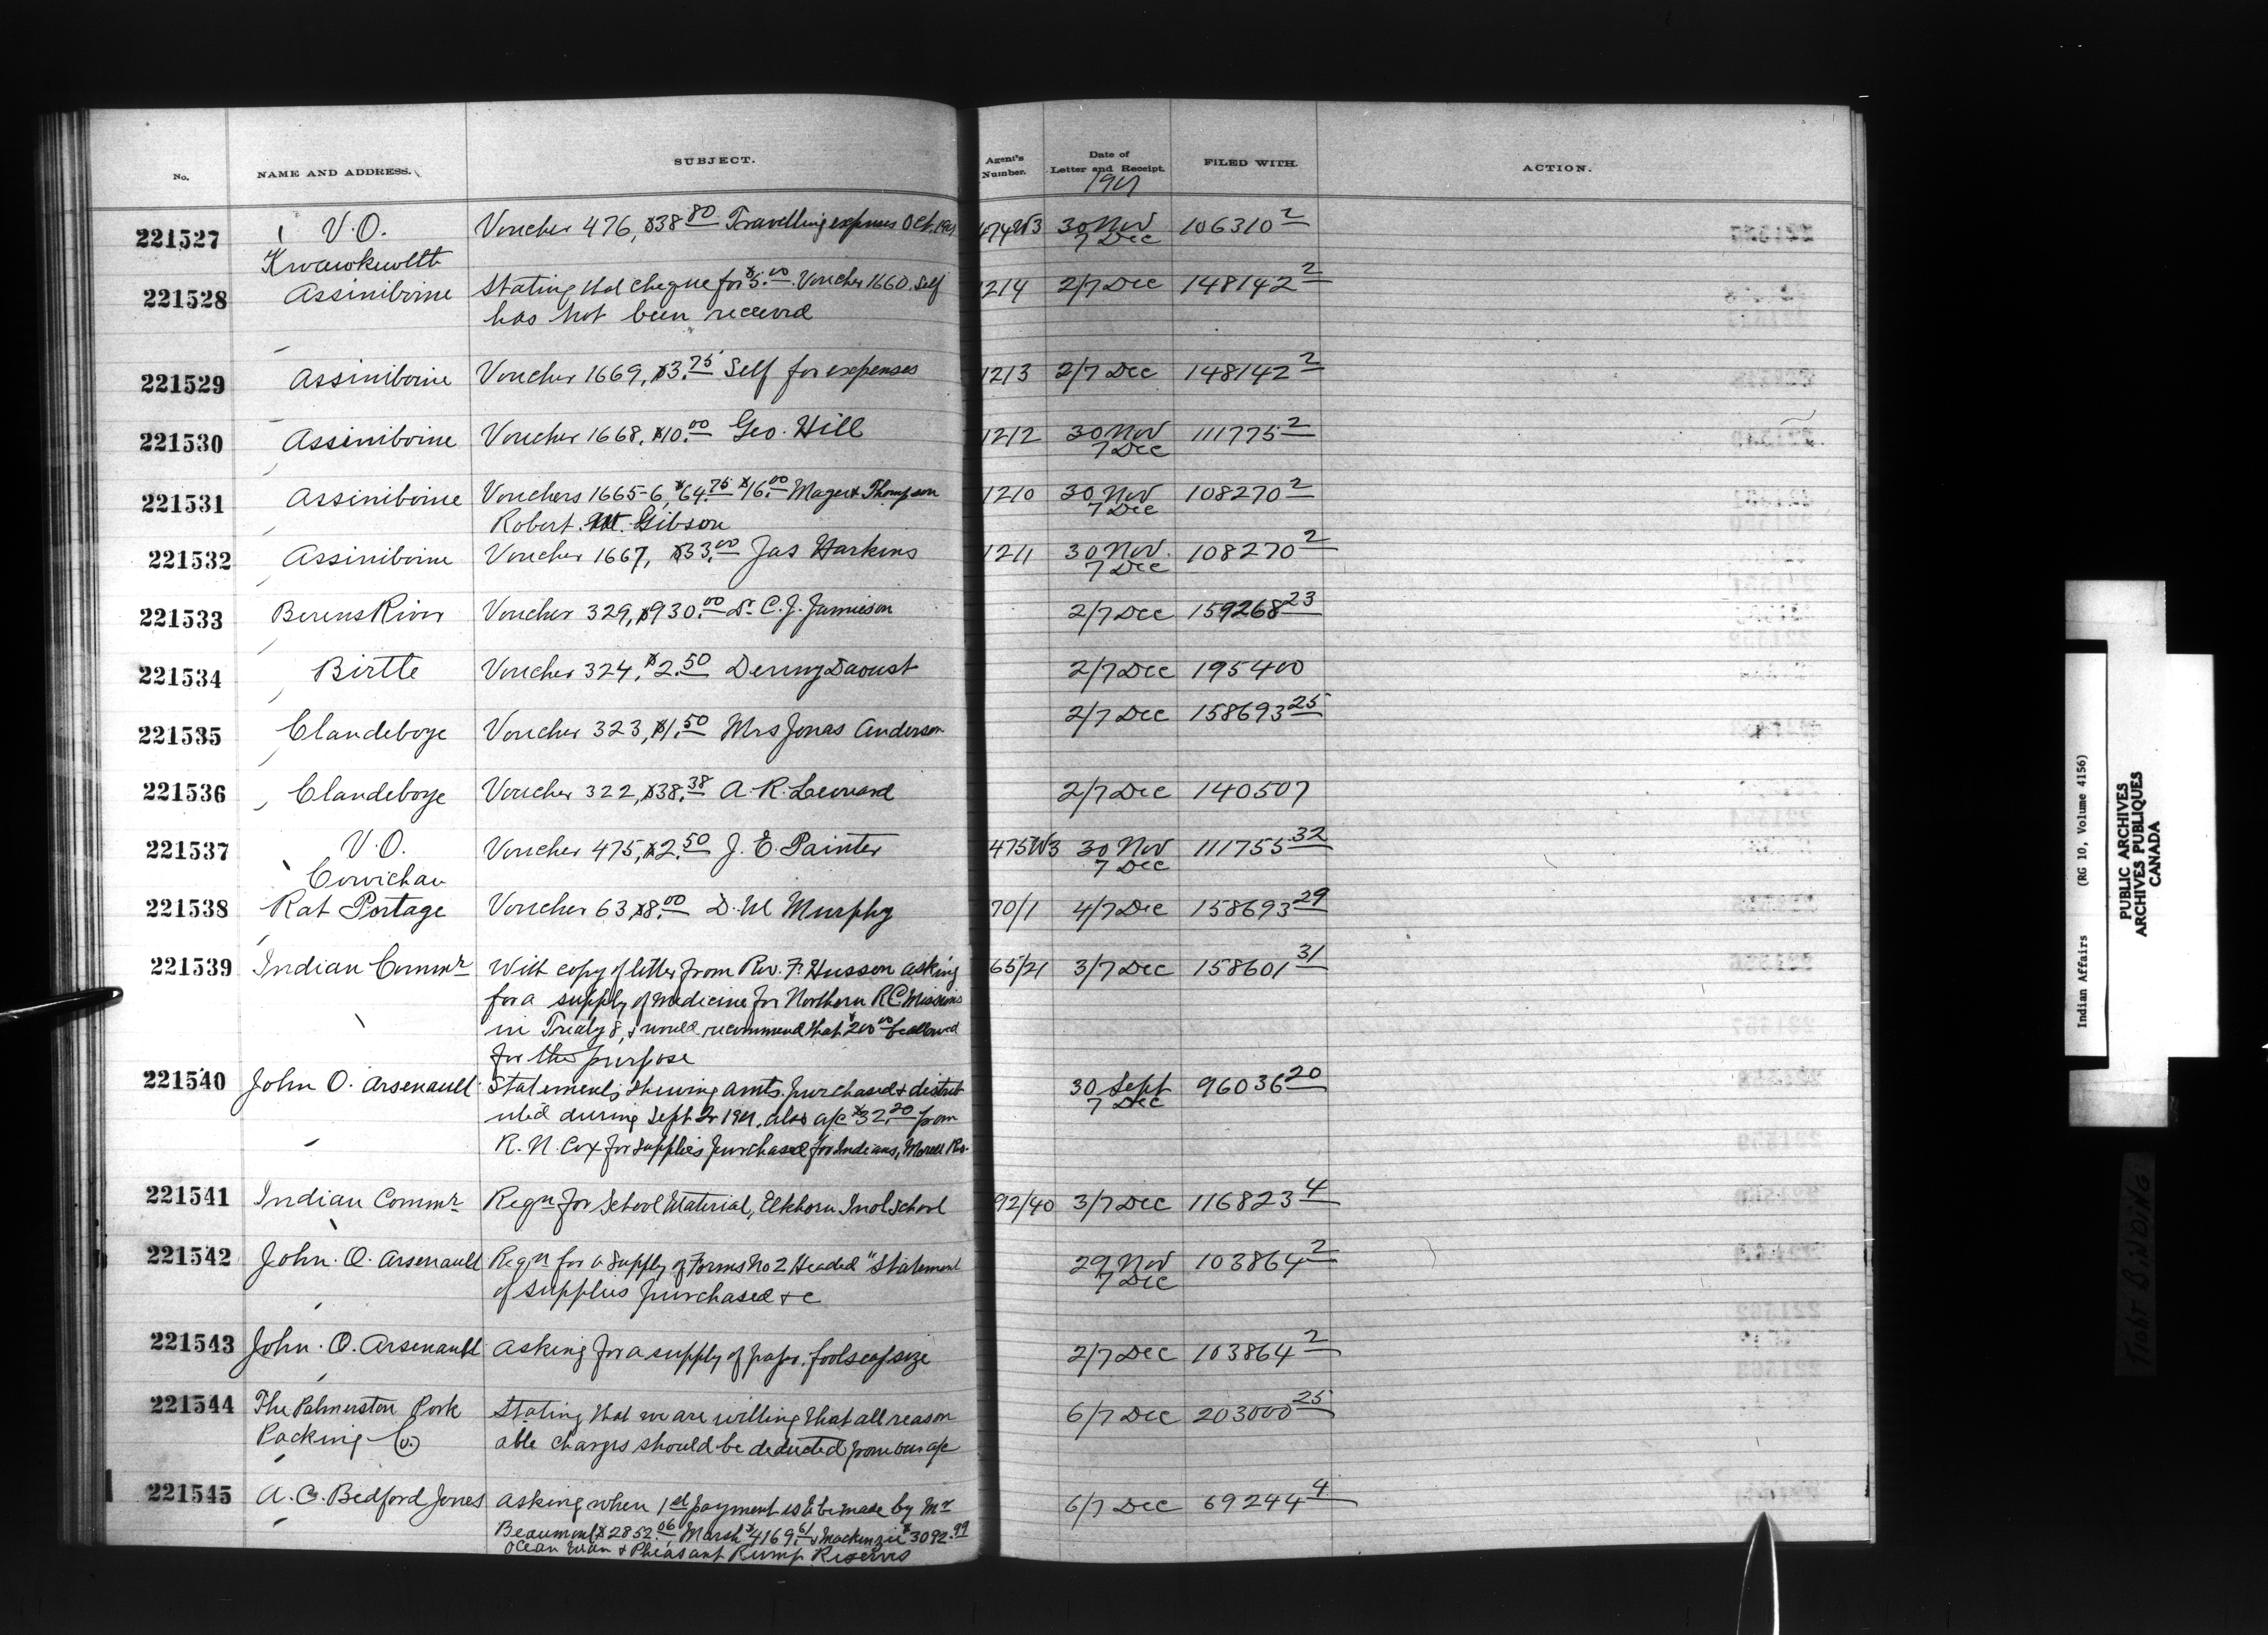 No. NAME AND ADDRESS. SUBJECT. Agent's Number. Date of Letter and Receipt. FILED WITH. ACTION.
1901
221527 V.O. Voucher 476, $38.80 Travelling expenses Oct. 1901 474W3 30 Nov 106310 2
Kwawkwelth 7 Dec
221528 Assiniboine Stating that cheque for $5.00 Voucher 1660. Self 1214 2/7 Dec 148142 2
has not been received
221529 Assiniboine Voucher 1669, $3.75 Self for expenses 1213 2/7 Dec 148142 2
221530 Assiniboine Voucher 1668, $10.00 Geo. Hill 1212 30 Nov 111775 2
7 Dec
221531 Assiniboine Vouchers 1665-6, $64.75 $16.00 Mager & Thompson 1210 30 Nov 108270 2
Robert M. Gibson 7 Dec
221532 Assiniboine Voucher 1667, $33.00 Jas Harkins 1211 30 Nov. 108270 2
7 Dec
221533 Berens River Voucher 329, $930.00 Dr. C. J. Jamieson 2/7 Dec 159268 23
221534 Birtle Voucher 324, $2.50 Denny Daoust 2/7 Dec 195400
221535 Clandeboye Voucher 323, $1.50 Mrs Jonas Anderson 2/7 Dec 158693 25
221536 Clandeboye Voucher 322, $38.38 A. R. Leonard 2/7 Dec 140507
221537 V.O. Voucher 475, $2.50 J. E. Painter 475W3 30 Nov 111755 32
Cowichan 7 Dec
221538 Rat Portage Voucher 63 $8.00 D. M Murphy 70/1 4/7 Dec 158693 29
221539 Indian Commr With copy of letter from Rev. F. Husson asking 65/21 3/7 Dec 158601 31
for a supply of medicine for Northern R.C. Missions
in Treaty 8, & would recommend that $200.00 be allowed
for the purpose
221540 John O. Arsenault Statements shewing amts. purchased & distrib 30 Sept 96036 20
uted during Sept 2r 1901, also a/c $32.20 from 7 Dec
R. N. Cox for supplies purchased for Indians, Morell Res.
221541 Indian Commr Reqn for School Material, Elkhorn Indl School 92/40 3/7 Dec 116823 4
221542 John. O. Arsenault Reqn for a supply of Forms No 2 Headed "Statement 29 Nov 103864 2
of supplies purchased & c 7 Dec
221543 John. O. Arsenault Asking for a supply of paper, foolscap size 2/7 Dec 103864 2
221544 The Palmerston Pork Stating that we are willing that all reason 6/7 Dec 203000 25
Packing Co. able charges should be deducted from our a/c
221545 A. C. Bedford Jones Asking when 1st payment is to be made by Mr 6/7 Dec 69244 4
Beaumont $2852.06, Marsh $4169.61 & Mackenzie $3092.99
Ocean Man & Pheasant Rump Reserves
Indian Affairs (RG 10, Volume 4156)
PUBLIC ARCHIVES
ARCHIVES PUBLIQUES
CANADA
TIGHT BINDING